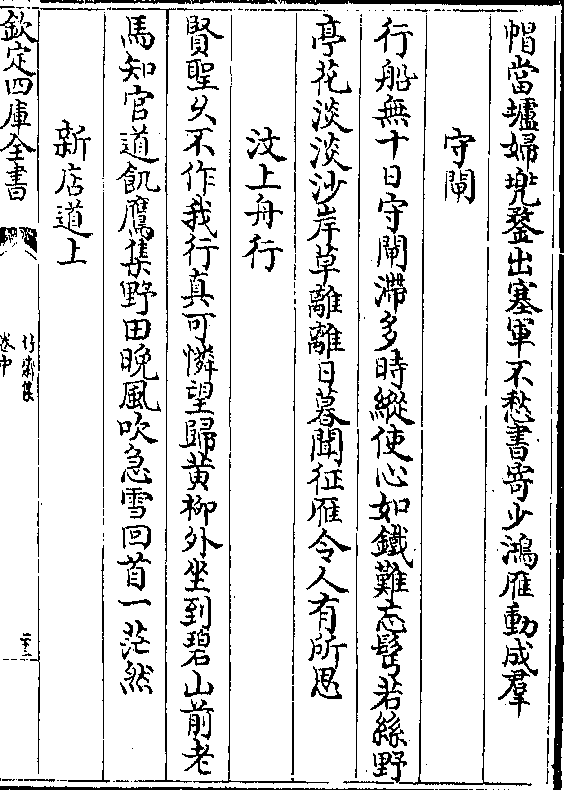 帽當壚婦兜鍪出塞軍不愁書寄少鴻雁動成羣
守閘
行船無十日守閘滯多時縱使心如鐵難忘髩若絲野
亭花淡淡沙岸草離離日暮聞征雁令人有所思
汶上舟行
賢聖久不作我行真可憐望歸黃柳外坐到碧山前老
馬知官道飢鷹集野田晚風吹急雪回首一茫然
新店道上
欽定四庫全書
竹齋集
卷中